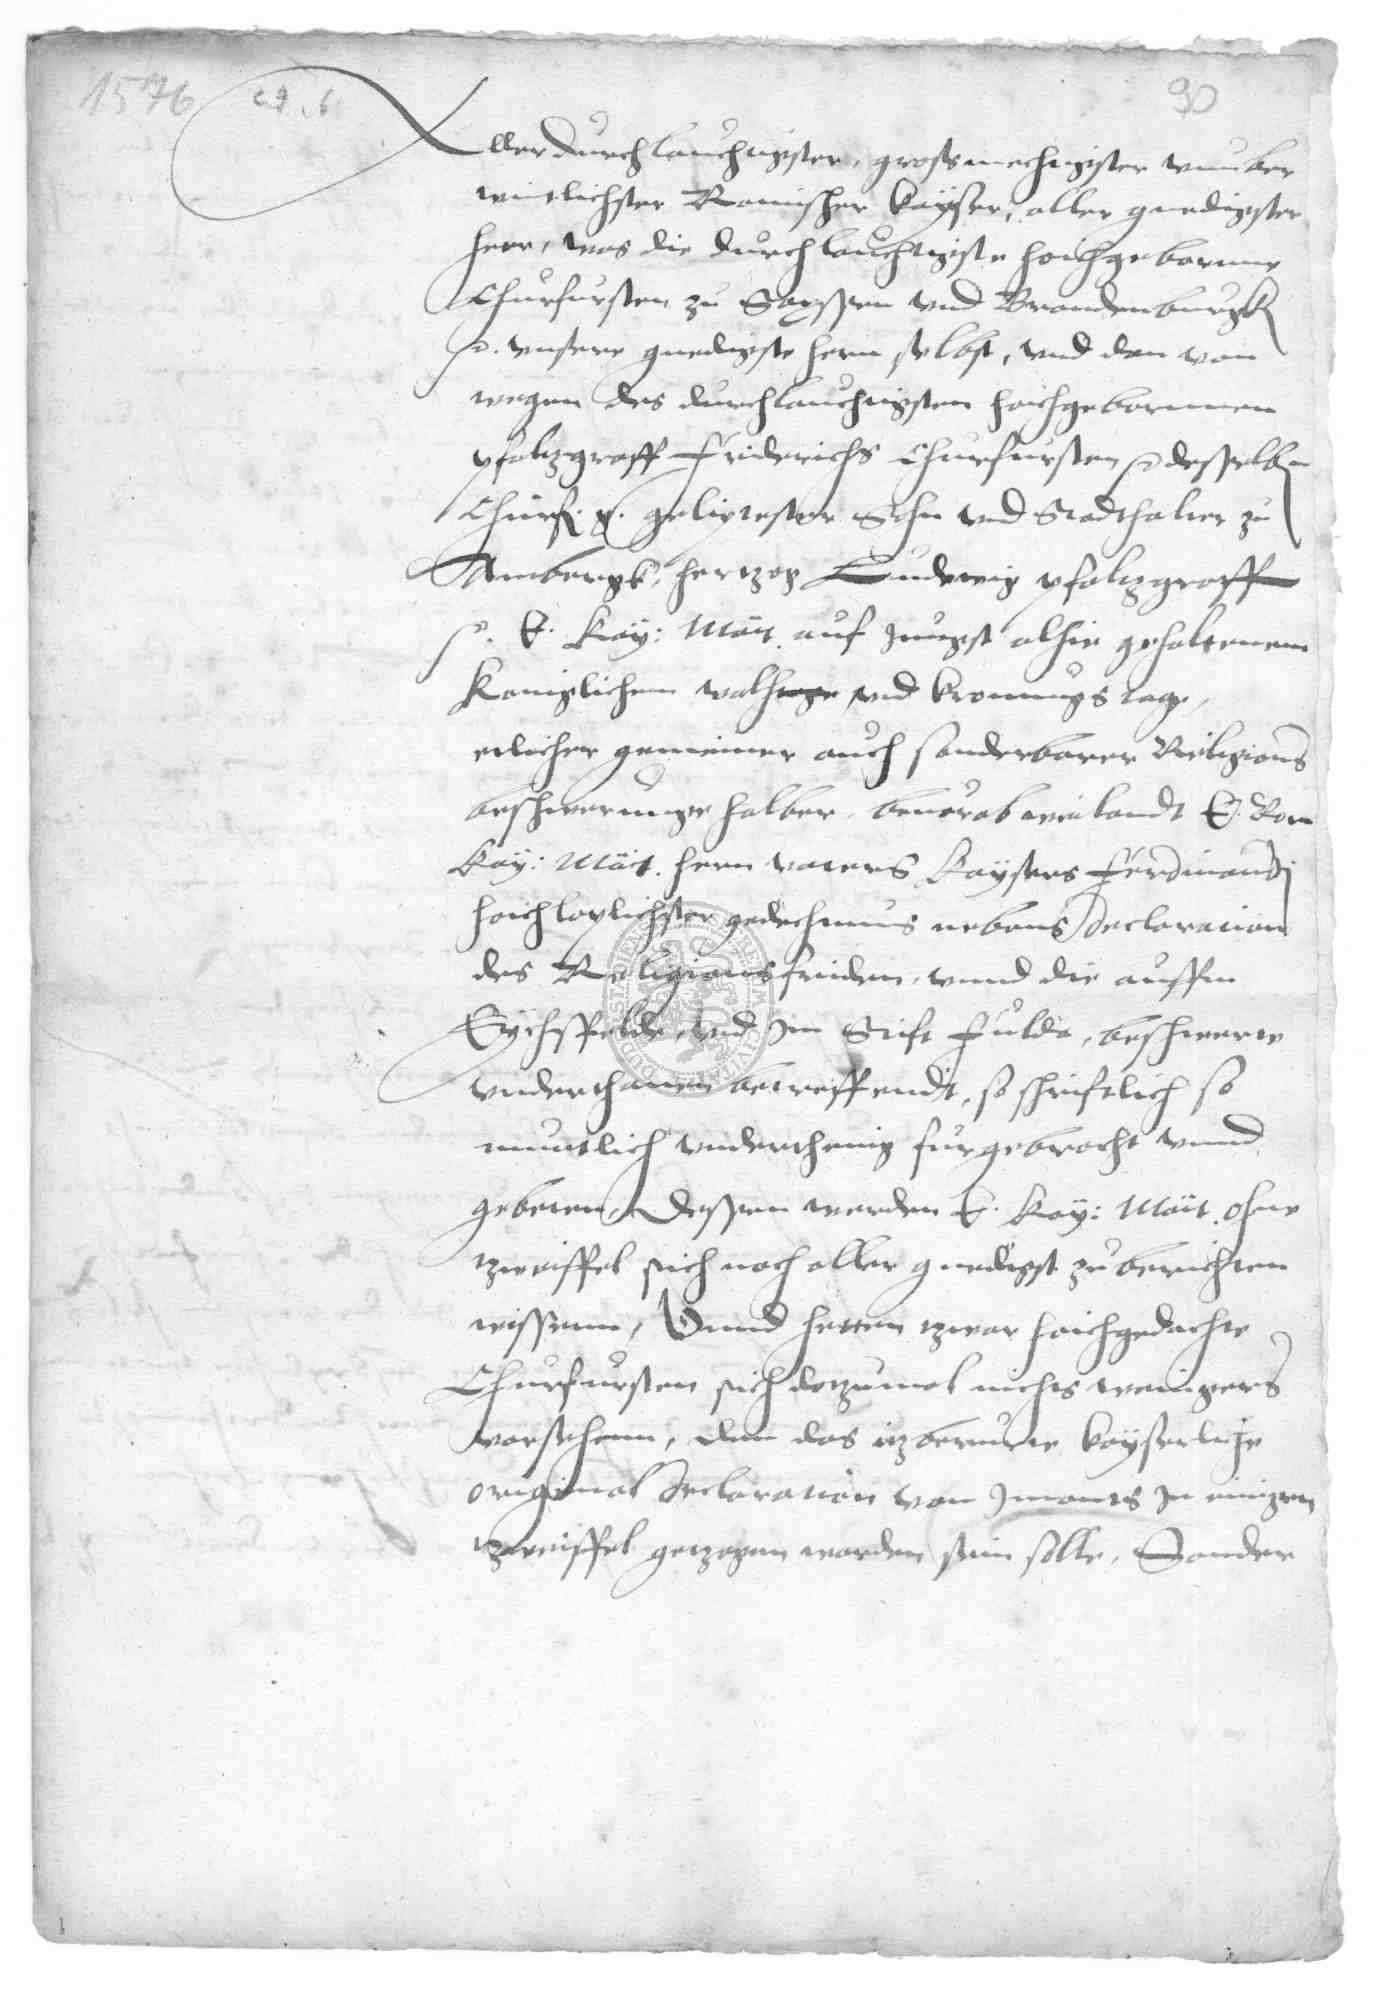 1576
90
Allerdurchlauchtigster, großmechtigster vnuber
wintlichster Romischer Kayser, aller gnedigster
herr, was die durchlauchtigste hoichgeborene
Churfursten zu Sachssen vnd Brandenburgk
vnsere gnedigste hern selbst, vnd dan von
wegen des durchlauchtigsten hoichgebornnen
pfaltzgraff Friderichs Churfursten desselben
Churf. g. geliepttester Sohn vnd Stadthalter zu
Ambergk, hertzog Ludewig pfaltzgraff
E. Kay: Mait. auf Jungst alhie gehaltenem
Koniglichem walh vnd kronungs tage,
etlicher gemeiner auch sonderbarer Religions
beschwerunge halber, beuorab weilandt E. Rom
Kay: Mait. hern vatters Kaysers Ferdinandj
hoichloplichster gedechtnus nebens Declaration
des Religionsfriden, vnnd die auffm
Eychsfelde, vnd Im Stift Fulda, beschwerte
vnderthanen betreffendt, so schriftlich so
muntlich vnderthenig furgebracht vnnd
gebeten, Dessen werden E. Kay: Mait. ohne
tzweiffel sich noch aller gnedigst zu berichten
wissenn, Vnnd hetten tzwar hoichgedachte
Churfursten sich dotzumal nichts wenigers
vorsehenn, dan das itzberurte kayserliche
original Declaration von Jmants In einigen
tzweiffel getzogen worden sein solle, Sonder